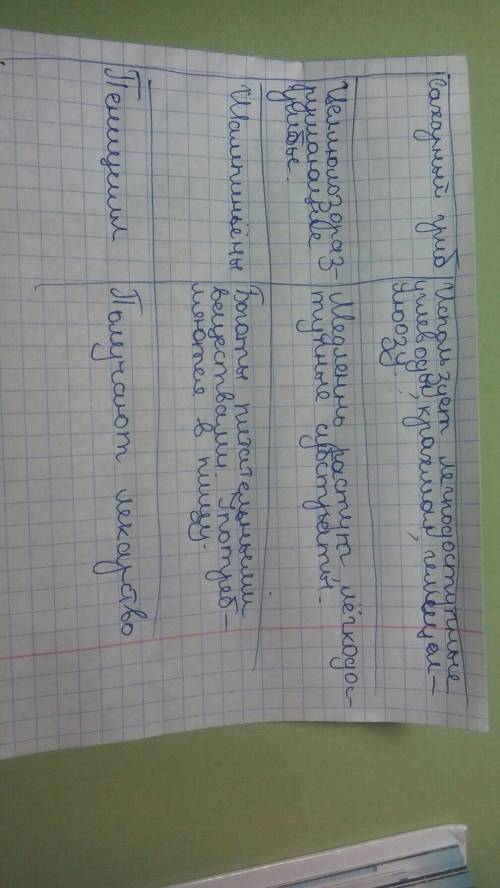 Сахарный гриб
Использует легкодоступные
углеводы, крахмал, гемицел-
люлозу.
Целлюлозораз-
рушающие
грибы.
Медленно растут, лёгкодос-
тупные субстраты.
Шампиньёны
Богаты питательными
веществами. Употреб-
ляются в пищу.
Пеницилл
Получают лекарство